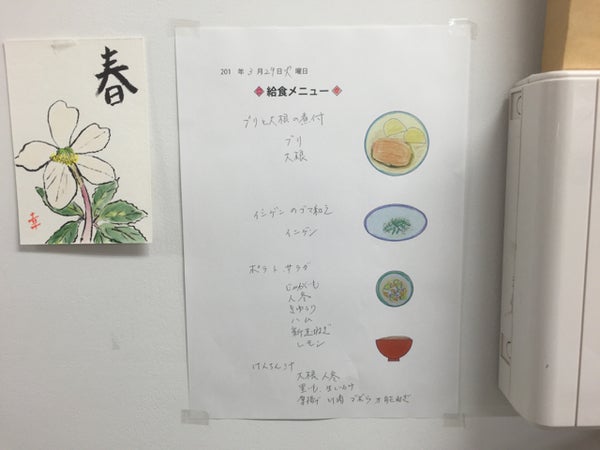 春
幸
201 年 3 月 29 日 火 曜日
給食メニュー
ブリと大根の煮付
ブリ
大根
インゲンのゴマ和え
インゲン
ポテトサラダ
じゃがいも
人参
きゅうり
ハム
新玉ねぎ
レモン
けんちん汁
大根 人参
里いも 生しいたけ
厚揚げ ゴボウ